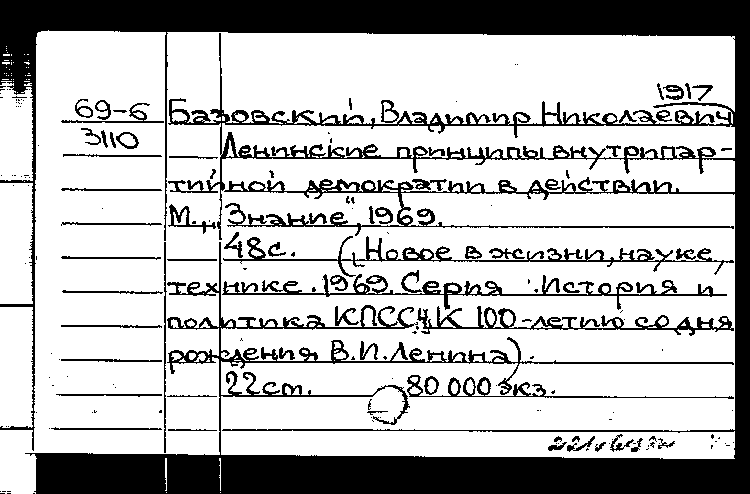 1917
69-6 Базовский, Владимир Николаевич
3110 Ленинские принципы внутрипар-
тийной демократии в действии.
М., „Знание“, 1969.
48с. (Новое в жизни, науке,
технике. 1969. Серия: История и
политика КПСС. К 100-летию со дня
рождения В.И.Ленина).
22см. 80 000 экз.